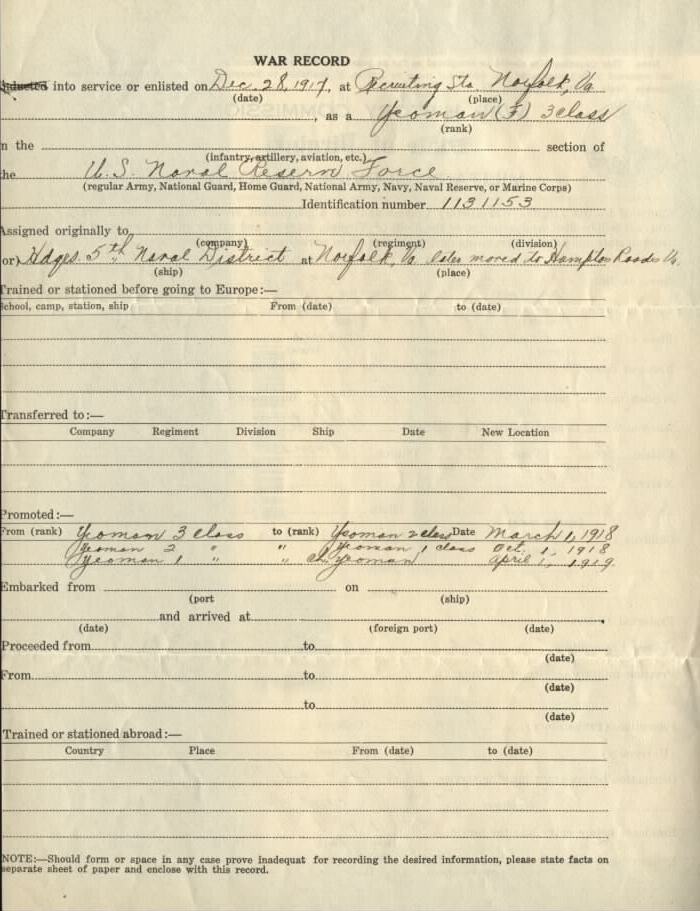 WAR RECORD
into service or enlisted on Dec. 28, 1917, at Recruiting Sta. Norfolk, Va
(date) (place)
, as a Yeoman (F) 3 class
(rank)
n the section of
(infantry, artillery, aviation, etc.)
he U.S. Naval Reserve Force
(regular Army, National Guard, Home Guard, National Army, Navy, Naval Reserve, or Marine Corps)
Identification number 1131153
Assigned originally to
(company) (regiment) (division)
or) Hdqs. 5th Naval District at Norfolk, Va later moved to Hampton Roads Va.
(ship) (place)
Trained or stationed before going to Europe:—
School, camp, station, ship From (date) to (date)
Transferred to:—
Company Regiment Division Ship Date New Location
Promoted:—
From (rank) Yeoman 3 class to (rank) Yeoman 2 class Date March 1, 1918
Yeoman 2 " " Yeoman 1 class Oct. 1, 1918
Yeoman 1 " " Ch. Yeoman April 1, 1919.
Embarked from on
(port (ship)
and arrived at
(date) (foreign port) (date)
Proceeded from to
(date)
From to
(date)
to
(date)
Trained or stationed abroad:—
Country Place From (date) to (date)
NOTE:—Should form or space in any case prove inadequat for recording the desired information, please state facts on
separate sheet of paper and enclose with this record.